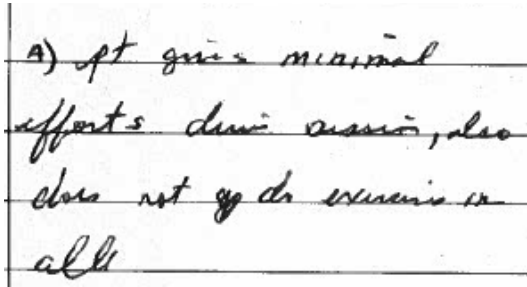 A) pt gives minimal
efforts durin session, also
does not do exercises in